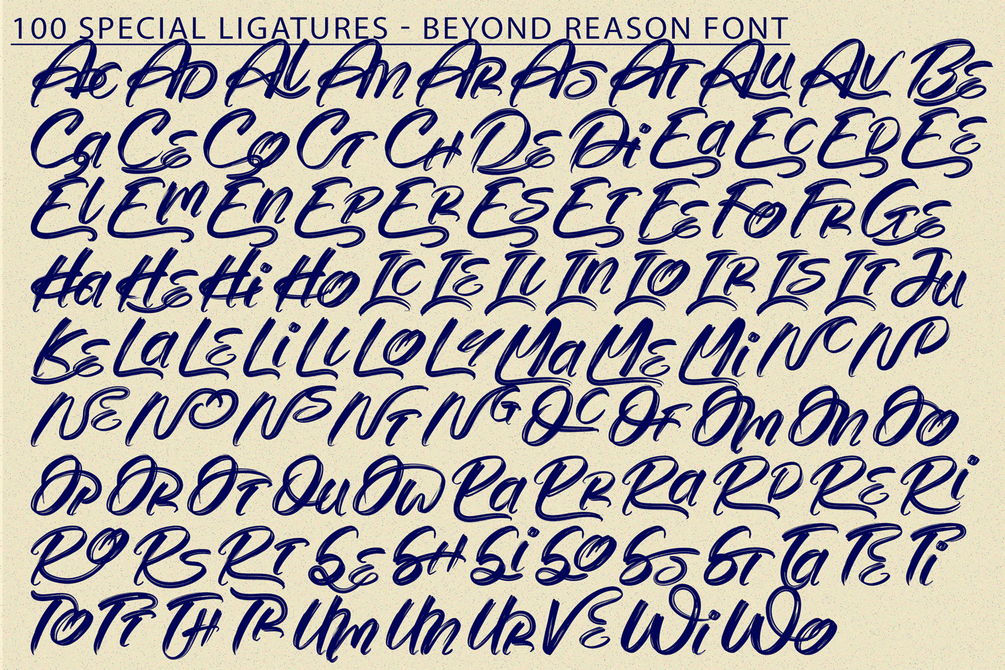 100 SPECIAL LIGATURES - BEYOND REASON FONT
Ac AD Al Am AR AS AT Au AV BE
Ca CE Co CT CH DE Di Ea EC ED EE
El Em En EP ER ES ET FE Fo FR GE
Ha HE Hi Ho IC IE Il In IO IR IS IT Ju
KE La LE Li Ll LO Ly Ma ME Mi NC ND
NE NO NS NT NG OC OF Om On Oo
OP OR OT Ou Ow Pa PR Ra RD RE Ri
RO RS RT SE SH Si SO SS ST Ta TE Ti
TO TT TH TR Um Un UR VE Wi Wo